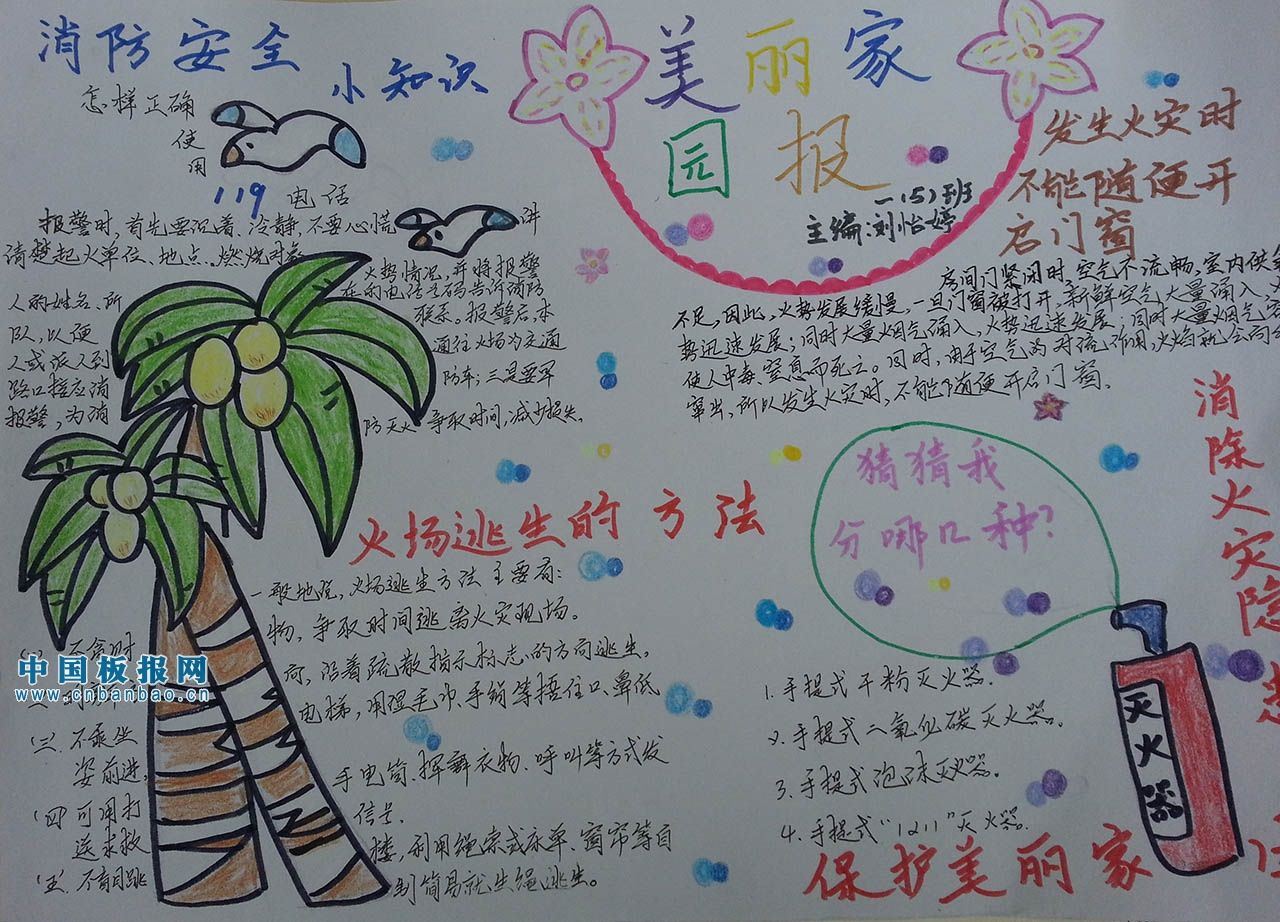 消防安全
小知识
怎样正确
使
用
119 电话
报警时,首先要沉着、冷静,不要心慌 讲
清楚起火单位、地点、燃烧对象
火势情况,并将报警
人的姓名、所 在的电话号码告诉消防
队,以便 联系。报警后,本
人或派人到 通往火场的交通
路口接应消 防车;三是要早
报警,为消 防灭火争取时间,减少损失。
美丽家
园报
一(5)班
主编:刘怡婷
发生火灾时
不能随便开
启门窗
房间门紧闭时,空气不流畅,室内供氧
不足,因此,火势发展缓慢,一旦门窗被打开,新鲜空气大量涌入,火
势迅速发展;同时大量烟气涌入,火势迅速发展;同时大量烟气
使人中毒、窒息而死亡。同时,由于空气的对流作用,火焰就会向外
窜出,所以发生火灾时,不能随便开启门窗。
火场逃生的方法
一般地说,火场逃生方法主要有:
(一)不贪财
物,争取时间逃离火灾现场。
向,沿着疏散指示标志的方向逃生,
(三)不乘坐 电梯,用湿毛巾、手绢等捂住口、鼻低
姿前进,
(四)可用打 手电筒、挥舞衣物、呼叫等方式发
送求救 信号
(五)不盲目跳 楼,利用绳索或床单、窗帘等自
制简易救生绳逃生。
猜猜我
分哪几种?
1.手提式干粉灭火器.
2.手提式二氧化碳灭火器。
3.手提式泡沫灭火器.
4.手提式“1211”灭火器.
灭火器
消除火灾隐患
保护美丽家
中国板报网
www.cnbanbao.cn